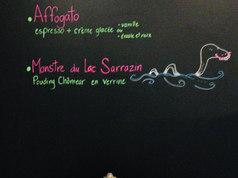 • Affogato
espresso + crème glacée • vanille
ou
• érable et noix
• Monstre du Lac Sarrazin
Pouding Chômeur en verrine